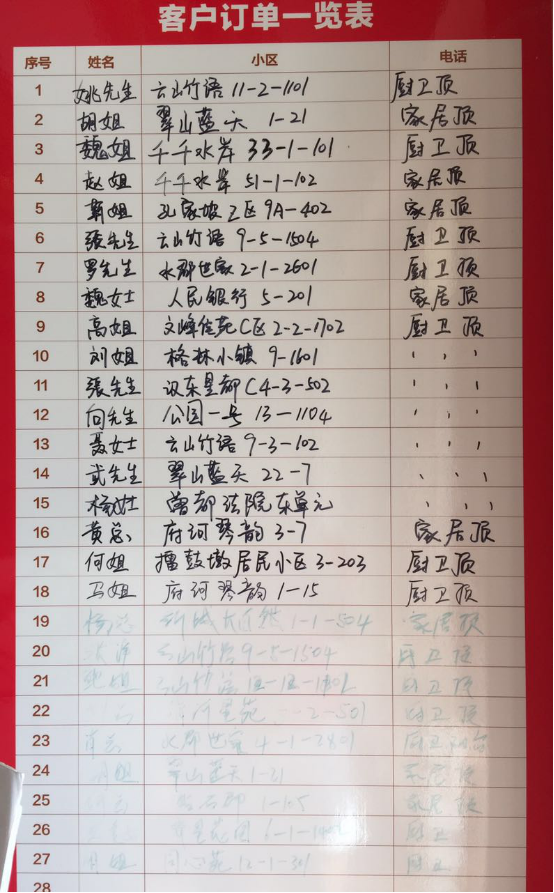 客户订单一览表
序号 姓名 小区 电话
1 姚先生 云山竹语 11-2-1101 厨卫顶
2 胡姐 翠山蓝天 1-21 家居顶
3 魏姐 千千水岸 33-1-101 厨卫顶
4 赵姐 千千水岸 51-1-102 家居顶
5 姐 孔家坡工区 9A-402 家居顶
6 張先生 云山竹语 9-5-1504 厨卫顶
7 罗先生 水郡世家 2-1-2601 厨卫顶
8 魏女士 人民银行 5-201 家居顶
9 高姐 文峰佳苑C区 2-2-1702 厨卫顶
10 刘姐 格林小镇 9-1601 、、、
11 張先生 汉东皇都 C4-3-502 、、、
12 向先生 公园一号 13-1104 、、、
13 聂女士 云山竹语 9-3-102 、、、
14 武先生 翠山蓝天 22-7 、、、
15 杨女士 曾都法院东单元 、、、
16 黄总 府河琴韵 3-7 家居顶
17 何姐 擂鼓墩居民小区 3-203 厨卫顶
18 马姐 府河琴韵 1-15 厨卫顶
19 1-1-504 家居顶
20 云山竹语 9-5-1504 厨卫顶
21 厨卫顶
22 2-501 厨卫顶
23 水郡世家 4-1-2401
24 翠山蓝天 1-21 家居顶
25 1-105 家居顶
26 厨卫
27 12-1-301 厨卫
28